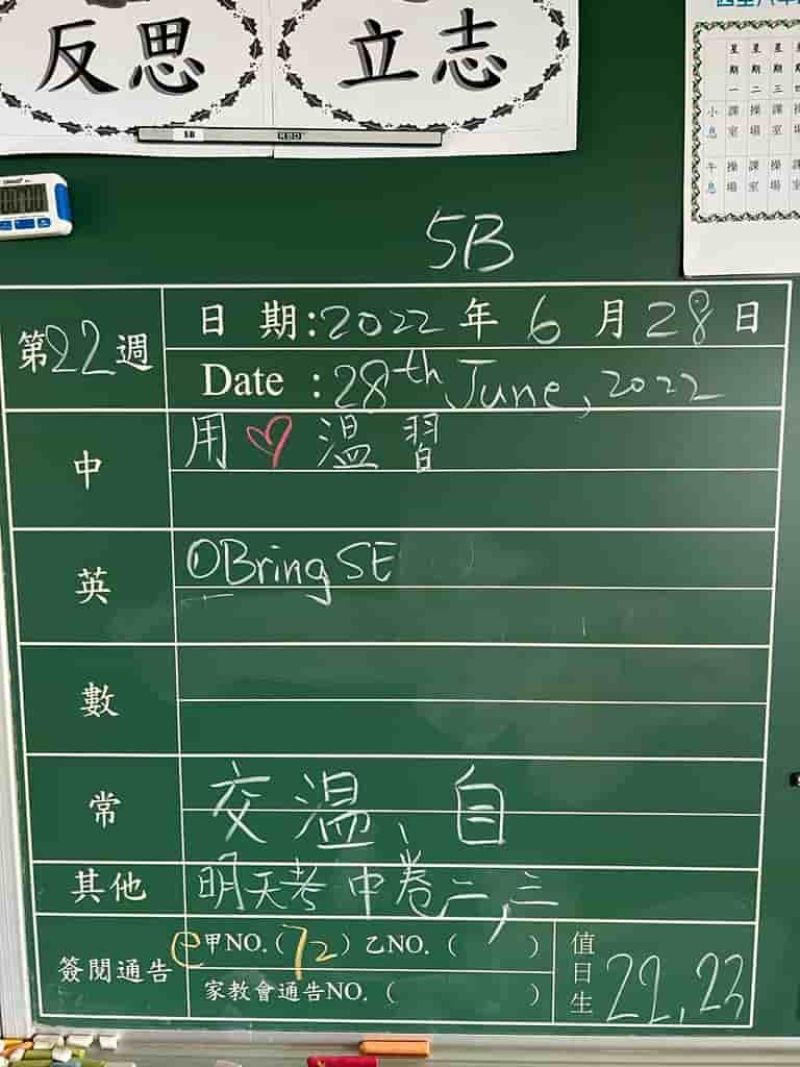 反思 立志
5B
星期一 星期二 星期三
小息 課室 操場 課室
午息 操場 課室 操場
5B
第22週
日 期:2022 年 6 月 28 日
Date :28th June, 2022
中
用♡溫習
英
①Bring SE
數
常
交溫、自
其他
明天考中卷二,三
簽閱通告
e甲NO.(72) 乙NO.( )
家教會通告NO.( )
值日生
22,23